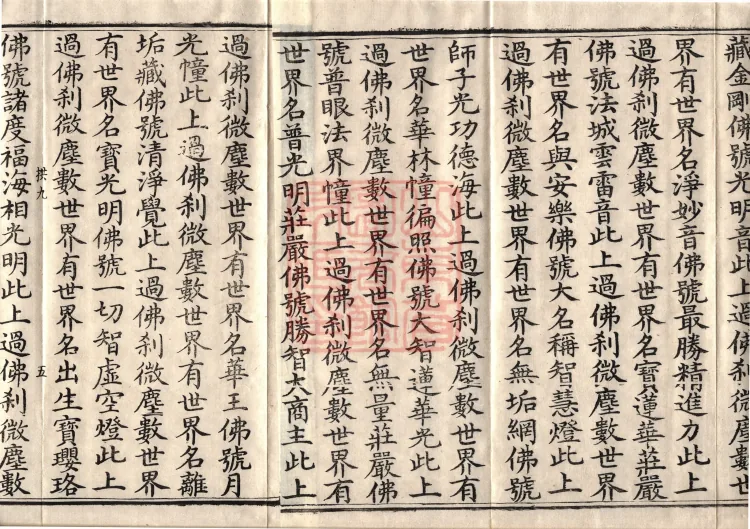 藏金剛佛號光明音此上過佛刹微塵數世
界有世界名淨妙音佛號最勝精進力此上
過佛刹微塵數世界有世界名寶蓮華莊嚴
佛號法城雲雷音此上過佛刹微塵數世界
有世界名與安樂佛號大名稱智慧燈此上
過佛刹微塵數世界有世界名無垢網佛號
師子光功德海此上過佛刹微塵數世界有
世界名華林幢徧照佛號大智蓮華光此上
過佛刹微塵數世界有世界名無量莊嚴佛
號普眼法界幢此上過佛刹微塵數世界有
世界名普光明莊嚴佛號勝智大商主此上
過佛刹微塵數世界有世界名華王佛號月
光幢此上過佛刹微塵數世界有世界名離
垢藏佛號清淨覺此上過佛刹微塵數世界
有世界名寶光明佛號一切智虛空燈此上
過佛刹微塵數世界有世界名出生寶瓔珞
拱九
五
佛號諸度福海相光明此上過佛刹微塵數